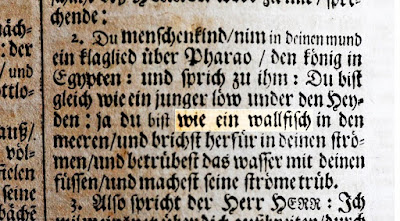 chende:
2. Du menschenkind/nim in deinen mund
ein klaglied über Pharao / den könig in
Egypten : und sprich zu ihm : Du bist
gleich wie ein junger löw unter den Hey-
den : ja du bist wie ein wallfisch in den
meeren/und brichst herfür in deinen strö-
men/und betrübest das wasser mit deinen
füssen/und machest seine ströme trüb.
3. Also spricht der Herr HERR: Ich
der
/und
ttlo-
auß/
völ-
ielen
seine
bäche